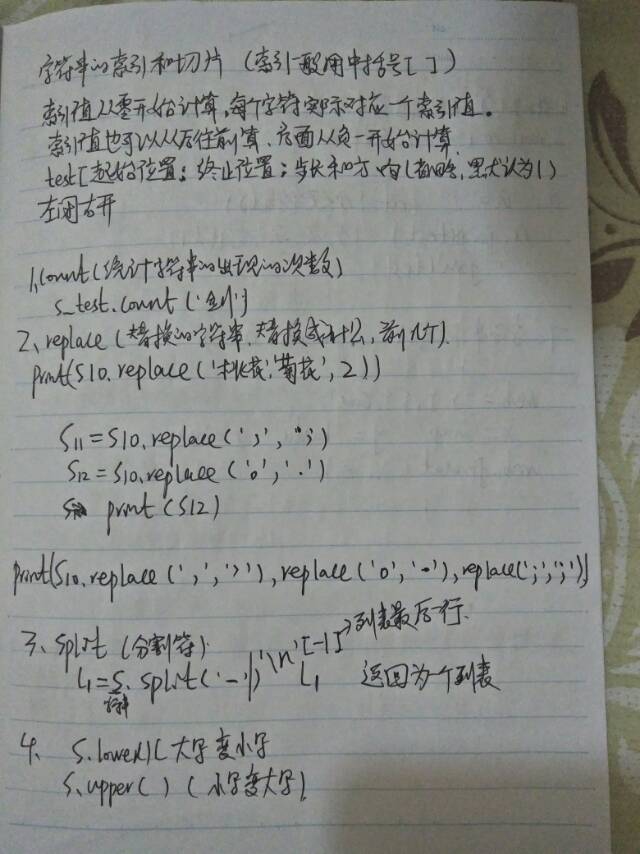 字符串的索引和切片（索引一般用中括号[ ]）
索引值从零开始计算,每个字符都对应一个索引值。
索引值也可以从后往前算,后面从负一开始计算
test[起始位置:终止位置:步长和方向(省略,默认为1)
左闭右开
1、count(统计字符串的出现的次数)
s_test.count('剑')
2、replace(替换的字符串,替换成什么,前几个).
print(S10.replace('桃花','菊花',2))
S11=S10.replace(';',
S12=S10.replace('o','.')
print(S12)
print(S10.replace(',','>'),replace('o','.'),replace(';',';'))
3、split(分割符)
'\n'[-1]→列表最后一行.
L1=S.split('-') L1 返回为一个列表
字符串
4、S.lower()(大字变小字
S.upper()(小字变大字).